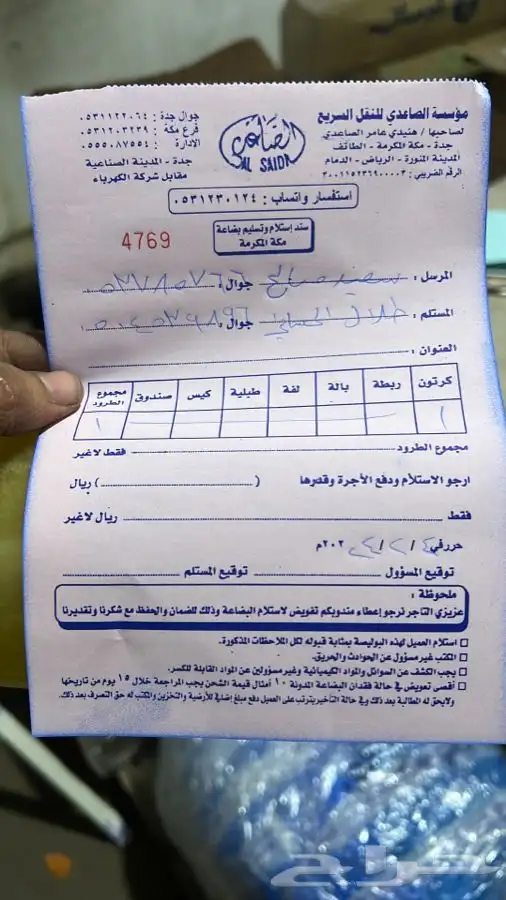 مؤسسة الصاعدي للنقل السريع
لصاحبها / هنيدي عامر الصاعدي
جدة - مكة المكرمة - الطائف
المدينة المنورة - الرياض - الدمام
الرقم الضريبي : ٣٠٠١١٥٢٣٦٩٠٠٠٠٣
الصاعدي
AL SAIDI
جوال جدة : ٠٥٣١١٢٢٠٦٤
فرع مكة : ٠٥٣١٢٠٣٢٣٩
الادارة : ٠٥٥٥٠٨٧٥٥٤
جدة - المدينة الصناعية
مقابل شركة الكهرباء
استفسار واتساب : ٠٥٣١٢٣٠١٢٤
4769
سند إستلام وتسليم بضاعة
مكة المكرمة
المرسل : جوال :
المستلم : طلال جوال :
العنوان :
كرتون ربطة بالة لفة طبلية كيس صندوق مجموع الطرود
١ ١
مجموع الطرود فقط لاغير
ارجو الاستلام ودفع الأجرة وقدرها ( ) ريال
فقط ريال لاغير
حرر في / ٢ / ٢٠٢م
توقيع المسؤول توقيع المستلم
ملحوظة :
عزيزي التاجر نرجو إعطاء مندوبكم تفويض لاستلام البضاعة وذلك للضمان والحفظ مع شكرنا وتقديرنا
استلام العميل لهذه البوليصة بمثابة قبوله لكل الملاحظات المذكورة.
المكتب غير مسؤول عن الحوادث والحريق.
يجب الكشف عن السوائل والمواد الكيميائية وغير مسؤولين عن المواد القابلة للكسر.
أقصى تعويض في حالة فقدان البضاعة المدونة ١٠ أمثال قيمة الشحن يجب المراجعة خلال ١٥ يوم من تاريخها
ولايحق له المطالبة بعد ذلك وفي حالة التأخير يترتب على العميل دفع مبلغ إضافي للأرضية والتخزين والمكتب له حق التصرف بعد ذلك.
حراج